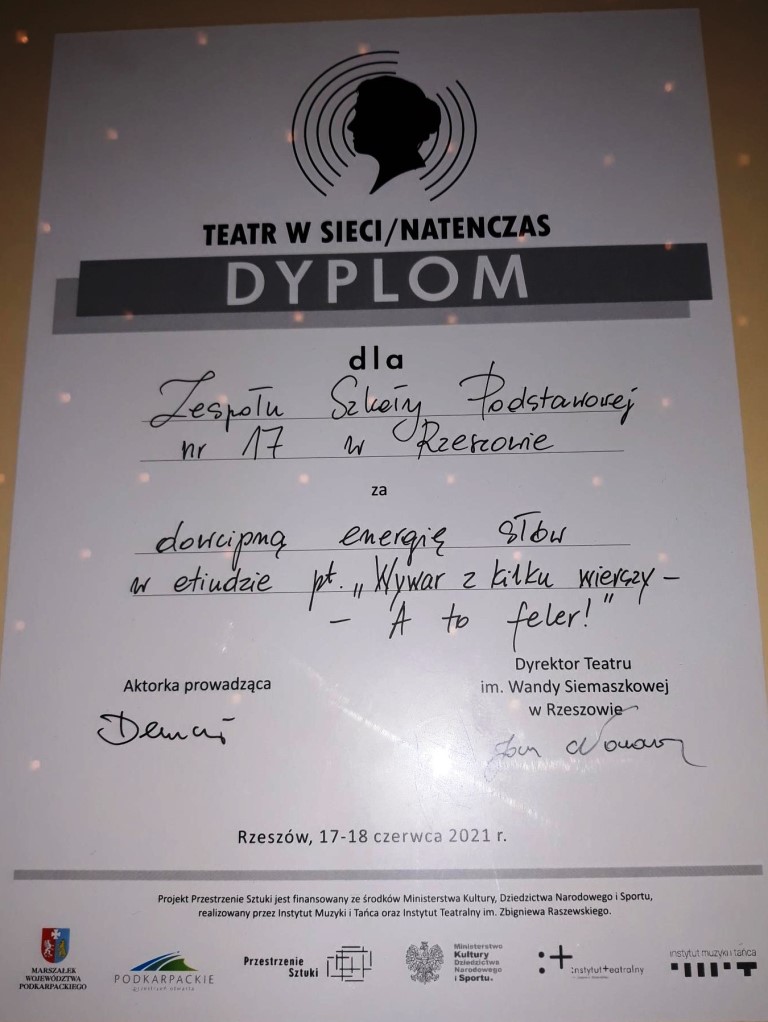 TEATR W SIECI/NATENCZAS
DYPLOM
dla
Zespołu Szkoły Podstawowej
nr 17 w Rzeszowie
za
dowcipną energię słów
w etiudzie pt. „Wywar z kilku wierszy –
– A to feler!"
Aktorka prowadząca
Dyrektor Teatru
im. Wandy Siemaszkowej
w Rzeszowie
Rzeszów, 17-18 czerwca 2021 r.
Projekt Przestrzenie Sztuki jest finansowany ze środków Ministerstwa Kultury, Dziedzictwa Narodowego i Sportu,
realizowany przez Instytut Muzyki i Tańca oraz Instytut Teatralny im. Zbigniewa Raszewskiego.
MARSZAŁEK
WOJEWÓDZTWA
PODKARPACKIEGO
PODKARPACKIE
przestrzeń otwarta
Przestrzenie
Sztuki
Ministerstwo
Kultury
Dziedzictwa
Narodowego
i Sportu.
instytut teatralny
instytut muzyki i tańca